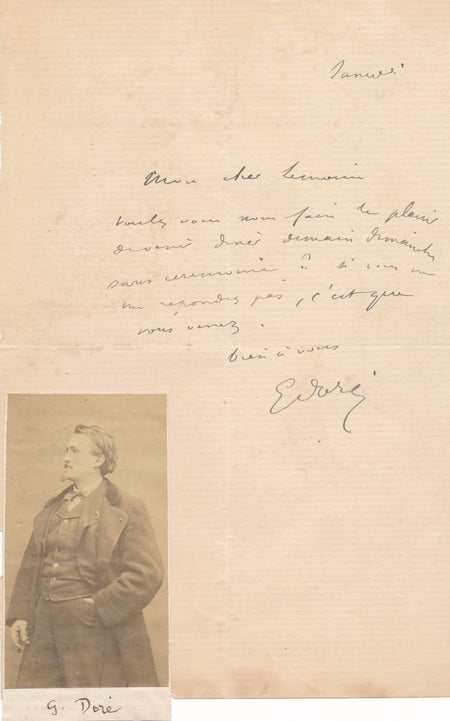 Samedi
Mon cher Lemoine
voulez vous nous faire le plaisir
de venir diner demain Dimanche
sans ceremonie ? si vous ne
me repondez pas, c'est que
vous venez.
bien à vous
G Doré
G. Doré